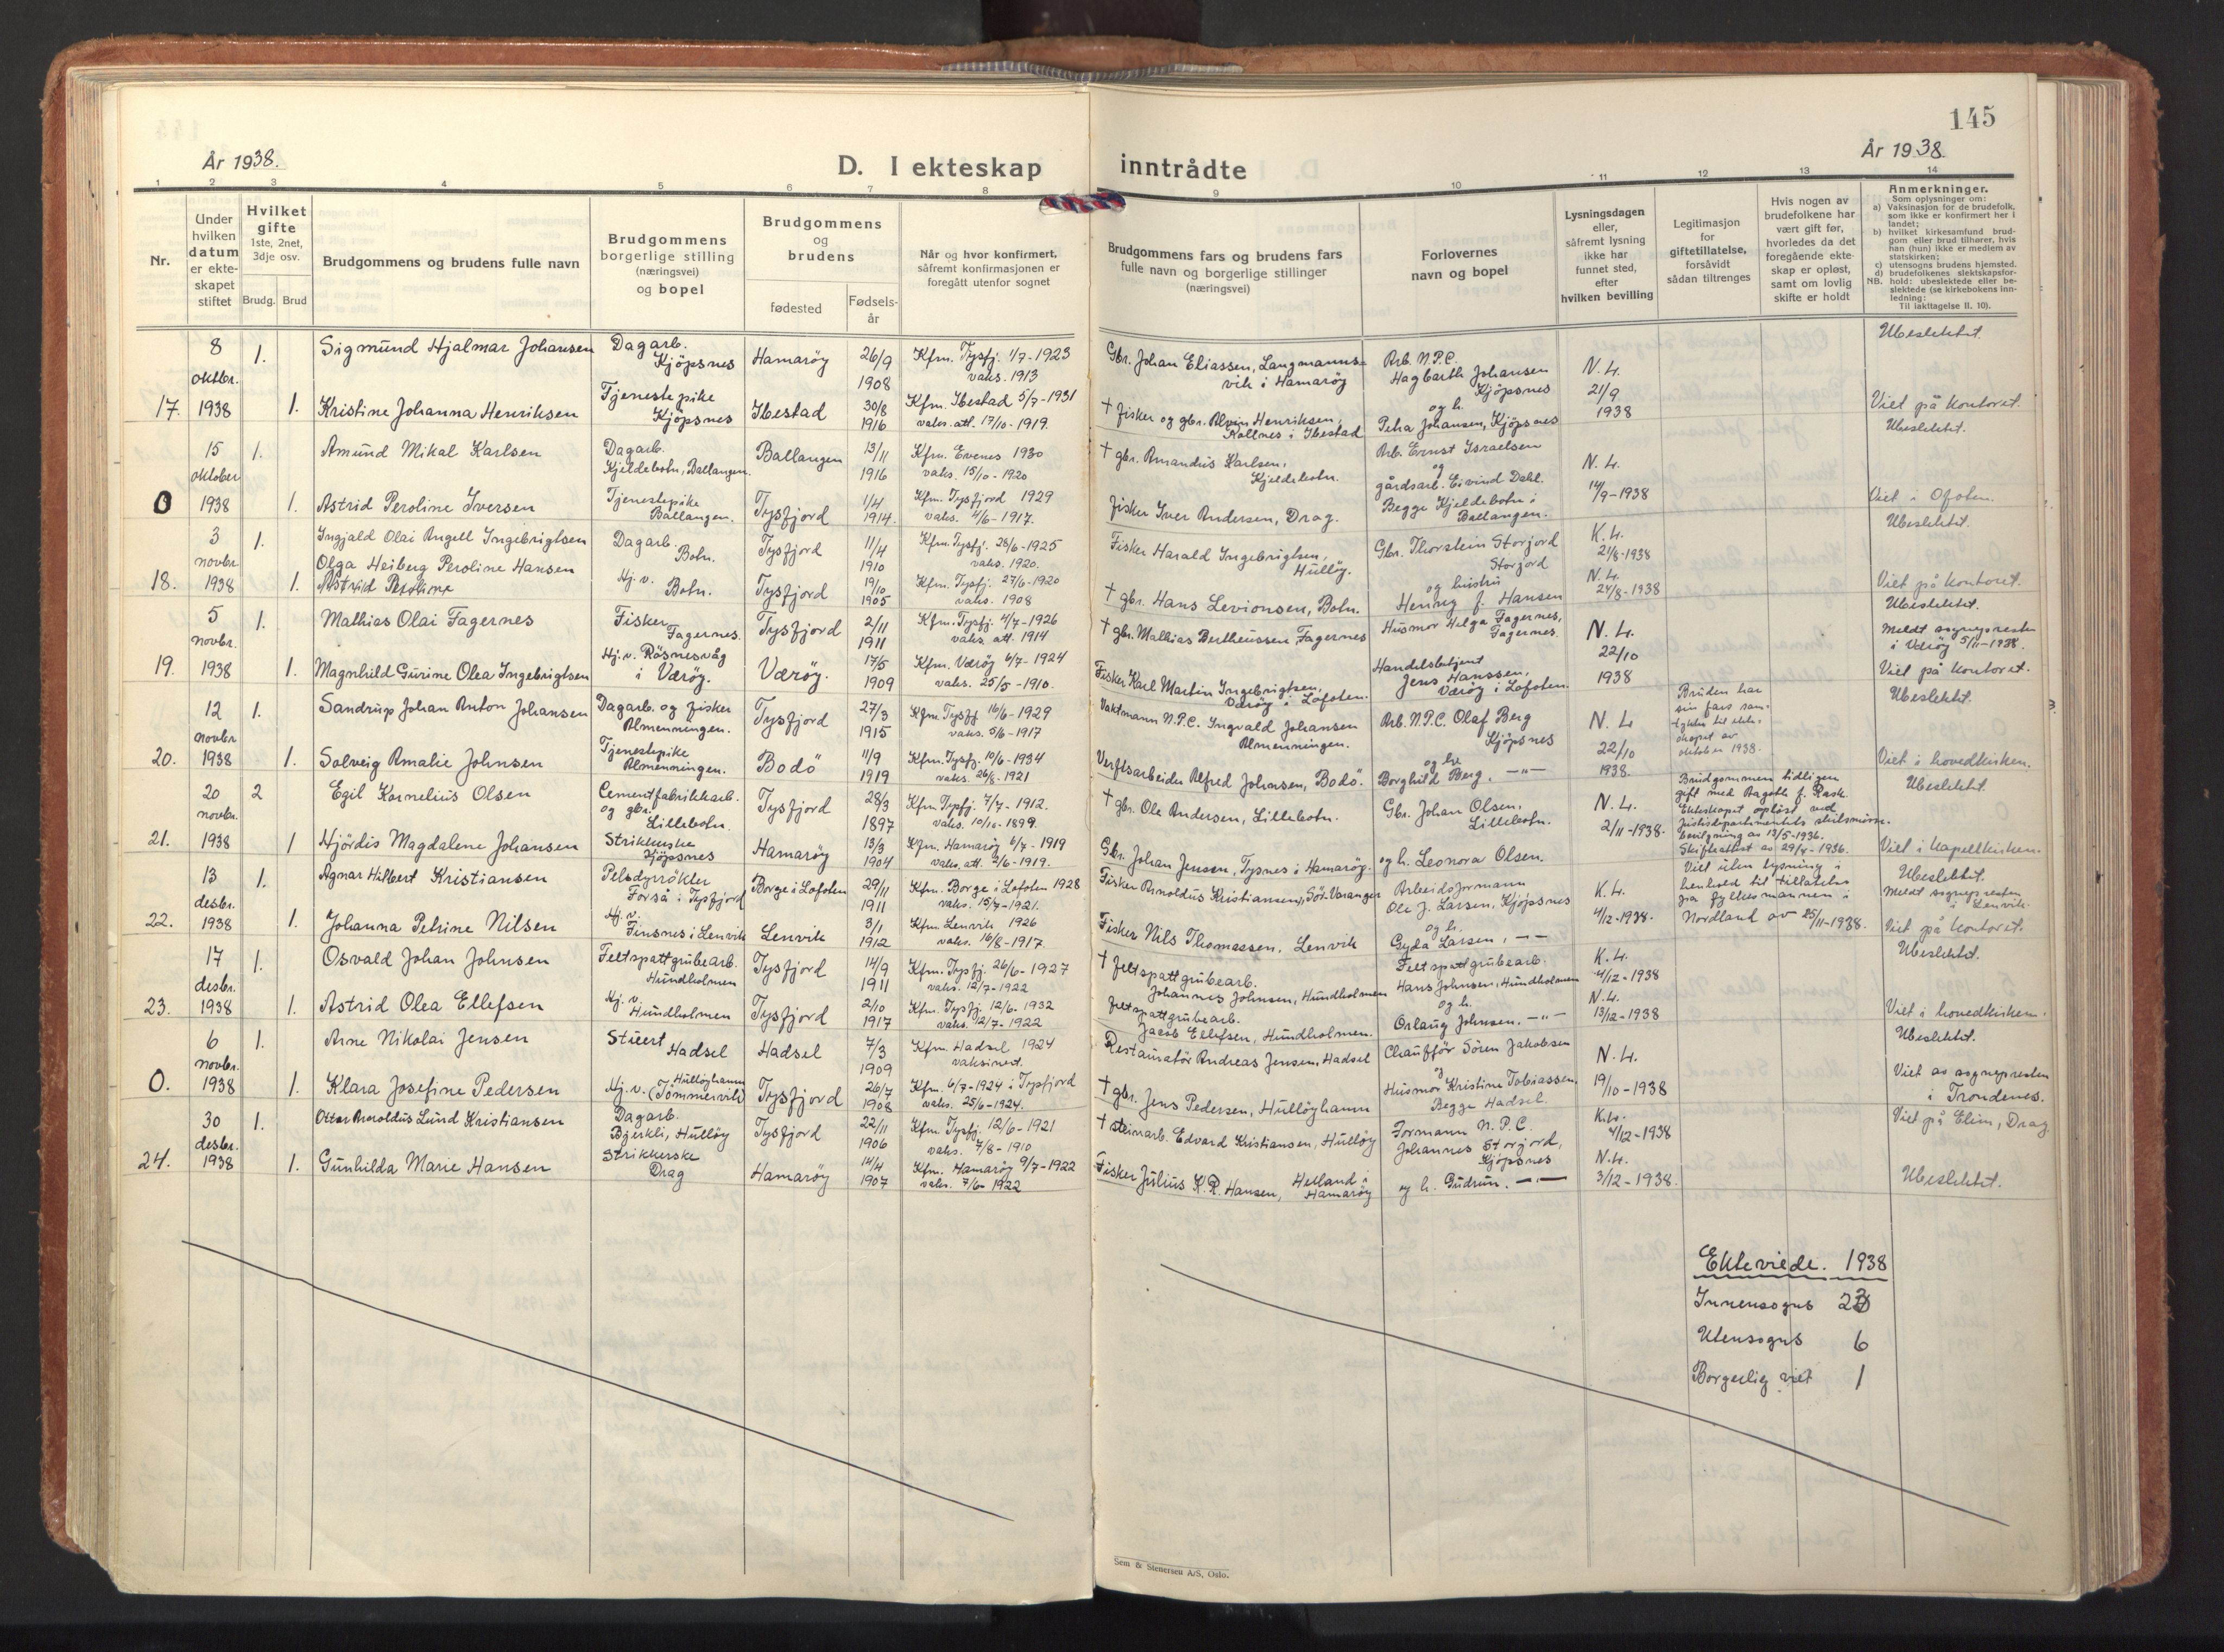 145
År 1938.
År 1938
D. I ekteskap inntrådte
1 2 3 4 5 6 7 8 9 10 11 12 13 14
Nr.
Under hvilken datum er ekteskapet stiftet
Hvilket gifte 1ste, 2net, 3dje osv.
Brudg. Brud
Brudgommens og brudens fulle navn
Brudgommens borgerlige stilling (næringsvei) og bopel
Brudgommens og brudens
fødested
Fødselsår
Når og hvor konfirmert, såfremt konfirmasjonen er foregått utenfor sognet
Brudgommens fars og brudens fars fulle navn og borgerlige stillinger (næringsvei)
Forlovernes navn og bopel
Lysningsdagen eller, såfremt lysning ikke har funnet sted, efter hvilken bevilling
Legitimasjon for giftetillatelse, forsåvidt sådan tiltrenges
Hvis nogen av brudefolkene har vært gift før, hvorledes da det foregående ekteskap er opløst, samt om lovlig skifte er holdt
Anmerkninger.
Som oplysninger om:
a) Vaksinasjon for de brudefolk, som ikke er konfirmert her i landet;
b) hvilket kirkesamfund brudgom eller brud tilhører, hvis han (hun) ikke er medlem av statskirken;
c) utensogns brudens hjemsted.
d) brudefolkenes slektskapsforhold: ubeslektede eller beslektede (se kirkebokens innledning:
NB.
Til iakttagelse II. 10).
8 oktbr. 1938 1. Sigmund Hjalmar Johansen Dagarb. Kjöpsnes Hamaröy 26/9 1908 Kfm. Tysfj. 1/7-1923 vaks. 1913 Gbr. Johan Eliassen, Langmannsvik i Hamaröy Arb. N.P.C. Hagbarth Johansen Kjöpsnes N.L. 21/9 1938 Ubeslektet.
17. 1. Kristine Johanna Henriksen Tjenestepike Kjöpsnes Ibestad 30/8 1916 Kfm. Ibestad 5/7-1931 vaks. att. 17/10-1919. † Fisker og gbr. Alvin Henriksen, Rollnes i Ibestad og h. Petra Johansen, Kjöpsnes Viet på kontoret.
15 oktober 1938 1. Amund Mikal Karlsen Dagarb. Kjeldebotn, Ballangen. Ballangen 13/11 1916 Kfm. Evenes 1930 vaks. 15/10-1920 † gbr. Amandus Karlsen, Kjeldebotn. Arb. Ernst Israelsen og N.L. 14/9-1938 Ubeslektet.
0 1. Astrid Peroline Iversen Tjenestepike Ballangen. Tysfjord 1/4 1914. Kfm. Tysfjord 1929 vaks. 4/6-1917. Fisker Iver Andersen, Drag. gårdsarb. Eivind Dahl. Begge Kjeldebotn i Ballangen. Viet i Ofoten.
3 novbr 1938 1. Ingjald Olai Angell Ingebrigtsen Dagarb. Botn. Tysfjord 11/4 1910 Kfm. Tysfj. 28/6-1925 vaks. 1920. Fisker Harald Ingebrigtsen, Hulløy. Gbr. Thorstein Storjord Storjord K.L. 21/8-1938 Ubeslektet.
18. 1. Olga Heiberg Peroline Hansen Hj.v. Botn. Tysfjord 19/10 1905 Kfm. Tysfj. 27/6-1920 vaks. 1908 † gbr. Hans Levionsen, Botn. og hustru Henny f. Hansen N.L. 24/8-1938 Viet på kontoret.
5 novbr. 1938 1. Mathias Olai Fagernes Fisker Fagernes. Tysfjord 2/11 1911 Kfm. Tysfj. 4/7-1926 vaks. att. 1914 † gbr. Mathias Bertheussen Fagernes Husmor Helga Fagernes, Fagernes. N.L. 22/10 1938 Ubeslektet. Meldt sognepresten i Værøy 5/11-1938.
19. 1. Magnhild Gurine Olea Ingebrigtsen Hj.v. Rösnesvåg i Væröy. Væröy. 17/5 1909 Kfm. Væröy 6/7-1924 vaks. 25/5-1910. Fisker Karl Martin Ingebrigtsen, Væröy i Lofoten. Handelsbetjent Jens Hanssen, Væröy i Lofoten. Viet på kontoret.
12 novbr 1938 1. Sandrup Johan Anton Johansen Dagarb. og fisker Almenningen. Tysfjord 27/3 1915 Kfm. Tysfj. 16/6-1929 vaks. 5/6-1917 Vaktmann N.P.C. Ingvald Johansen Almenningen. Arb. N.P.C. Olaf Berg Kjöpsnes N.L. 22/10 1938. Bruden har sin fars samtykke til ekteskapet av oktober 1938. Ubeslektet.
20. 1. Solveig Amalie Johnsen Tjenestepike Almenningen. Bodö 11/9 1919 Kfm. Tysfj. 10/6-1934 vaks. 26/8-1921 Verftsarbeider Alfred Johnsen, Bodö. og h. Borghild Berg. —"— Viet i hovedkirken.
20 novbr. 1938 2 Egil Kornelius Olsen Cementfabrikkarb. og gbr. Lillebotn. Tysfjord 28/3 1897 Kfm. Tysfj. 7/7-1912. vaks. 10/10-1899. † gbr. Ole Andersen, Lillebotn. Gbr. Johan Olsen, Lillebotn. N.L. 2/11-1938. Brudgommen tidligere gift med Ragoth f. Rask. Ekteskapet opløst ved Justisdepartementets skilsmissebevilgning av 13/5-1936. Skifteattest av 29/4-1936. Ubeslektet.
21. 1 Hjördis Magdalene Johansen Strikkerske Kjöpsnes Hamaröy 13/3 1904 Kfm. Hamaröy 6/7-1919 vaks. att. 2/6-1919. Gbr. Johan Jensen, Tysnes i Hamaröy. og h. Leonora Olsen. Viet i kapellkirken.
13 desbr. 1938 1. Agnar Hilbert Kristiansen Pelsdyrrökter Forså i Tysfjord Borge i Lofoten 29/11 1911 Kfm. Borge i Lofoten 1928 vaks. 15/7-1921. Fisker Arnoldus Kristiansen, Sör-Varanger Arbeidsformann Ole J. Larsen, Kjöpsnes K.L. 4/12-1938. Viet uten lysning i henhold til tillatelse fra fylkesmannen i Nordland av 25/11-1938. Ubeslektet. Meldt sognepresten i Lenvik.
22. 1. Johanna Petrine Nilsen Hj.v. Finsnes i Lenvik Lenvik 3/1 1912 Kfm. Lenvik 1926 vaks. 16/8-1917. Fisker Nils Thomassen, Lenvik og h. Gyda Larsen, —"— Viet på kontoret.
17 desbr. 1938 1. Osvald Johan Johnsen Feltspattgrubearb. Hundholmen Tysfjord 14/9 1911 Kfm. Tysfj. 26/6-1927 vaks. 12/7-1922 † Feltspattgrubearb. Johannes Johnsen, Hundholmen Feltspattgrubearb. Hans Johnsen, Hundholmen K.L. 4/12-1938 Ubeslektet.
23. 1. Astrid Olea Ellefsen Hj.v. Hundholmen Tysfjord 2/10 1917 Kfm. Tysfj. 12/6-1932 vaks. 12/7-1922 Feltspattgrubearb. Jacob Ellefsen, Hundholmen. og h. Orlaug Johnsen. —"— N.L. 13/12-1938 Viet i hovedkirken.
6 novbr. 1938 1. Arne Nikolai Jensen Stuert Hadsel Hadsel 7/3 1909 Kfm. Hadsel 1924 vaksinert. Restauratör Andreas Jensen, Hadsel Chauffför Sören Jakobsen og N.L. 19/10-1938 Ubeslektet.
0. 1. Klara Josefine Pedersen Hj.v. Hullöyhamn (Tömmervik) Tysfjord 26/7 1908 Kfm. 6/7-1924 i Tysfjord vaks. 25/6-1924. † gbr. Jens Pedersen, Hullöyhamn Husmor Kristine Tobiassen. Begge Hadsel. Viet av sognepresten i Trondenes.
30 desbr. 1938 1. Ottar Arnoldus Lund Kristiansen Dagarb. Bjerkli, Hullöy Tysfjord 22/11 1906 Kfm. Tysfj. 12/6-1921 vaks. 7/8-1910 † steinarb. Edvard Kristiansen, Hullöy Formann N.P.C. Johannes Storjord, Kjöpsnes K.L. 4/12-1938 Viet på Elim, Drag.
24. 1. Gunhilda Marie Hansen Strikkerske Drag Hamaröy 14/4 1907 Kfm. Hamaröy 9/7-1922 vaks. 7/6-1922 Fisker Julius K.R. Hansen, Helland i Hamaröy og h. Gudrun. —"— N.L. 3/12-1938. Ubeslektet.
Ektevi̇ede. 1938
Innensogns 23
Utensogns 6
Borgerlig viet 1
Sem & Stenersen A/S, Oslo.